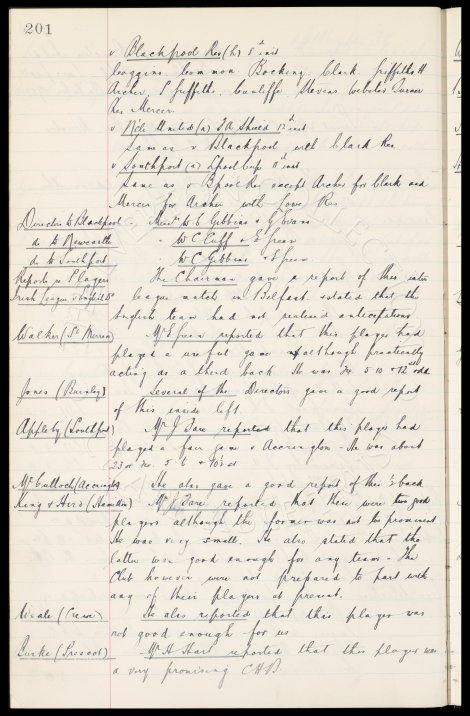 201
v Blackpool Res (h) 5th inst
Coggins Common Bocking Clark Griffiths H
Archer P Griffiths Cunliffe Stevens Webster Turner
Res Mercer
v N'cle United (a) FA Shield 12th inst
Same as v Blackpool with Clark Res
v Southport (a) L'pool Cup 8th inst
Same as v B'pool Res except Archer for Clark and
Mercer for Archer with Res
Directors to Blackpool Messrs W C Gibbins & G Evans
do to Newcastle " W C Cuff & E Green
do to Southport " W C Gibbins & E Green
Reports re Players The Chairman gave a report of this inter
Irish League v English league match in Belfast & stated that the
English team had not realised anticipations
Walker (St Mirren) Mr E Green reported that this player had
played a useful game although practically
acting as a third back He was 24 5 10 & 12st odd
Jones (Burnley) Several of the Directors gave a good report
of this inside left
Appleby (Southport) Mr J Fare reported that this player had
played a fair game v Accrington. He was about
23 5. 6 & 10st
McCulloch (Accrington) He also gave a good report of this back
King & Hird (Hamilton) Mr J Fare reported that these were two good
players although the former was not so prominent
He was very small. He also stated that the
latter was good enough for any team - The
Club however were not prepared to part with
any of their players at present.
Weale (Crewe) He also reported that this player was
not good enough for us
Burke (Prescot) Mr H Hart reported that this player was
a very promising C.H.B.